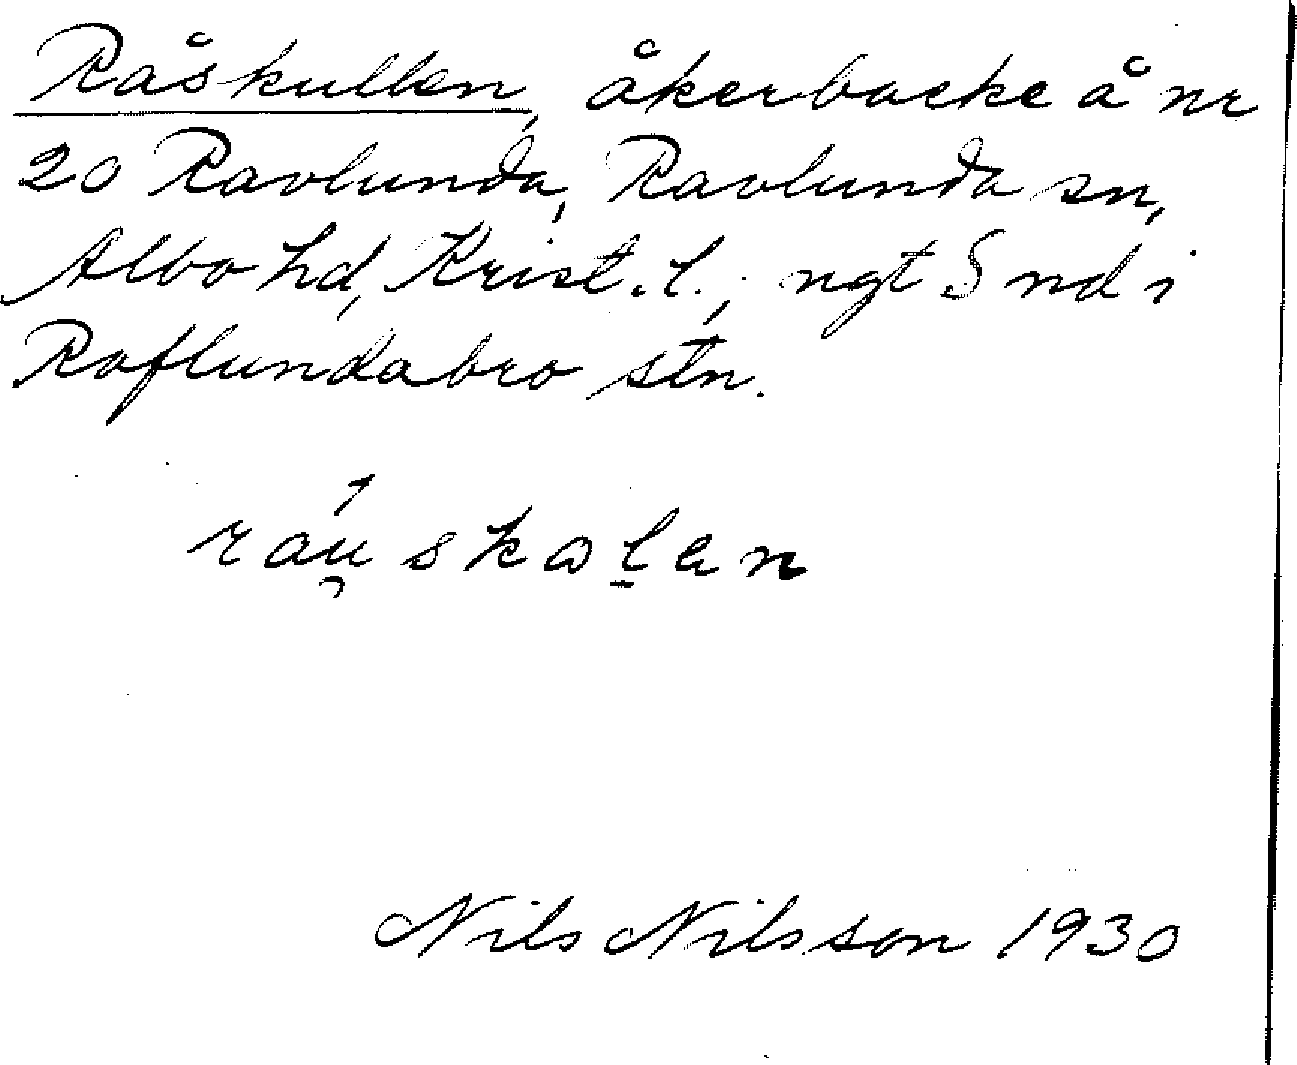 Råskullen, åkerbacke å nr
20 Ravlunda, Ravlunda sn,
Albo hd, Krist. l.; ngt S nd i
Raflundabro stn.
ráu̯skɷl̠en
Nils Nilsson 1930